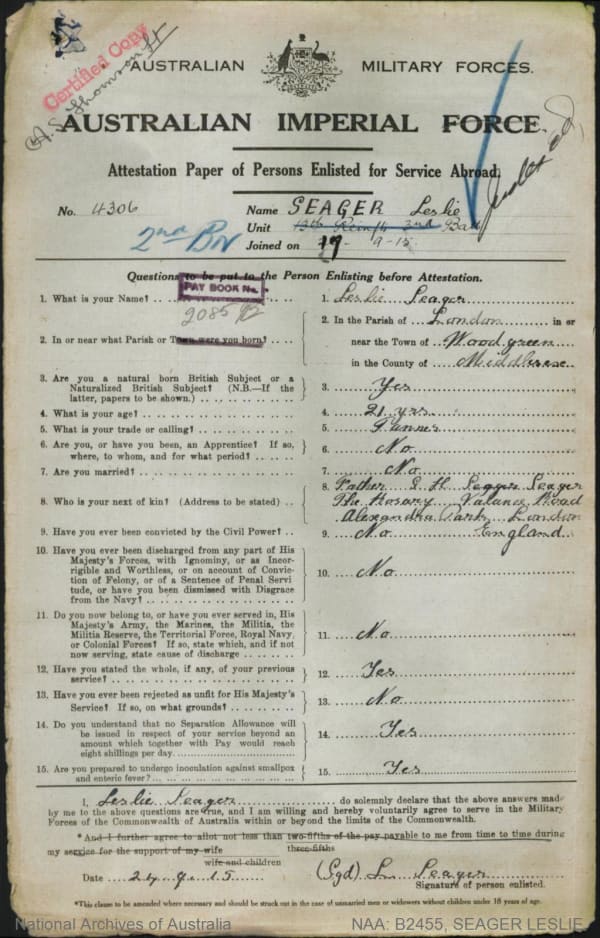 Certified Copy
AUSTRALIAN MILITARY FORCES.
AUSTRALIAN IMPERIAL FORCE.
Attestation Paper of Persons Enlisted for Service Abroad.
No. 4306 Name SEAGER Leslie
Unit 13th Reinfts 2nd Batt
2nd BN
Joined on 9-15
Questions to be put to the Person Enlisting before Attestation.
PAY BOOK No.
1. What is your Name? 1. Leslie Seager
2. In or near what Parish or Town were you born? 2. In the Parish of London in or
near the Town of Woodgreen
in the County of Middlesex
3. Are you a natural born British Subject or a
Naturalized British Subject? (N.B.—If the
latter, papers to be shown.) 3. Yes
4. What is your age? 4. 21 yrs
5. What is your trade or calling? 5.
6. Are you, or have you been, an Apprentice? If so,
where, to whom, and for what period? 6. No
7. Are you married? 7. No
8. Who is your next of kin? (Address to be stated) 8. Father H. Seager
The Rosary Valance Road
Alexandra Park London
England
9. Have you ever been convicted by the Civil Power? 9. No
10. Have you ever been discharged from any part of His
Majesty's Forces, with Ignominy, or as Incor-
rigible and Worthless, or on account of Convic-
tion of Felony, or of a Sentence of Penal Servi
tude, or have you been Dismissed with Disgrace
from the Navy? 10. No
11. Do you now belong to, or have you ever served in, His
Majesty's Army, the Marines, the Militia, the
Militia Reserve, the Territorial Force, Royal Navy
or Colonial Forces? If so, state which, and if not
now serving, state cause of discharge 11. No
12. Have you stated the whole, if any, of your previous
service? 12. Yes
13. Have you ever been rejected as unfit for His Majesty's
Service? If so, on what grounds? 13. No
14. Do you understand that no Separation Allowance will
be issued in respect of your service beyond an
amount which together with Pay would reach
eight shillings per day. 14. Yes
15. Are you prepared to undergo inoculation against smallpox
and enteric fever? 15. Yes
I, Leslie Seager do solemnly declare that the above answers made
by me to the above questions are true, and I am willing and hereby voluntarily agree to serve in the Military
Forces of the Commonwealth of Australia within or beyond the limits of the Commonwealth.
* And I further agree to allot not less than two-fifths of the pay payable to me from time to time during
my service for the support of my wife three-fifths
wife and children
Date 24.9.15 (Sgd) L. Seager
Signature of person enlisted.
*This clause to be amended where necessary and should be struck out in the case of unmarried men or widowers without children under 18 years of age.
National Archives of Australia NAA: B2455, SEAGER LESLIE